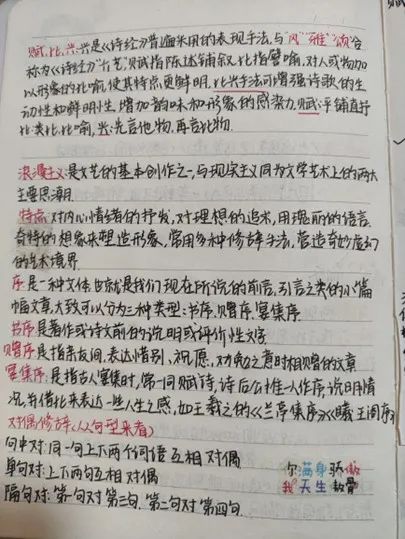 赋、比、兴:兴是《诗经》普遍采用的表现手法,与"风""雅""颂"合
称为《诗经》"六艺"赋指陈述铺叙,比指譬喻,对人或物加
以形象的比喻,使其特点更鲜明,比兴手法可增强诗歌的生
动性和鲜明性,增加韵味和形象的感染力,赋:平铺直抒
比:类比,比喻,兴:先言他物,再言比物.
浪漫主义:是文艺的基本创作之一,与现实主义同为文学艺术上的两大
主要思潮.
特点:对内心情绪的抒发,对理想的追求,用瑰丽的语言
奇特的想象来塑造形象,常用多种修辞手法,营造奇妙虚幻
的艺术境界.
序:是一种文体,也就是我们现在所说的前言,引言之类的小篇
幅文章,大致可以分为三种类型:书序,赠序,宴集序.
书序是著作或诗文前的说明或评价性文字
赠序:是指亲友间,表达惜别、祝愿,劝勉之意时相赠的文章
宴集序:是指古人宴集时,常一同赋诗,诗后公推一人作序,说明情
况,并借此来表达一些人生之感,如王羲之的《兰亭集序》《滕王阁序》
对偶修辞(从句型来看)
句中对:同一句上下两个词语互相对偶
单句对:上下两句互相对偶
隔句对:第一句对第三句.第二句对第四句.
你满身骄傲
我天生敖骨